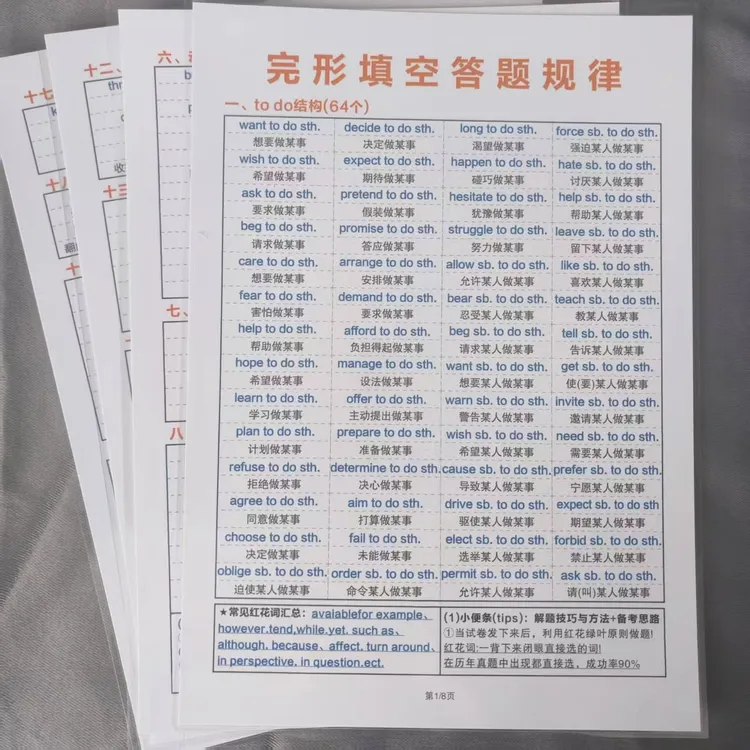 完形填空答题规律
一、to do结构(64个)
want to do sth. decide to do sth. long to do sth. force sb. to do sth.
想要做某事 决定做某事 渴望做某事 强迫某人做某事
wish to do sth. expect to do sth. happen to do sth. hate sb. to do sth.
希望做某事 期待做某事 碰巧做某事 讨厌某人做某事
ask to do sth. pretend to do sth. hesitate to do sth. help sb. to do sth.
要求做某事 假装做某事 犹豫做某事 帮助某人做某事
beg to do sth. promise to do sth. struggle to do sth. leave sb. to do sth.
请求做某事 答应做某事 努力做某事 留下某人做某事
care to do sth. arrange to do sth. allow sb. to do sth. like sb. to do sth.
想要做某事 安排做某事 允许某人做某事 喜欢某人做某事
fear to do sth. demand to do sth. bear sb. to do sth. teach sb. to do sth.
害怕做某事 要求做某事 忍受某人做某事 教某人做某事
help to do sth. afford to do sth. beg sb. to do sth. tell sb. to do sth.
帮助做某事 负担得起做某事 请求某人做某事 告诉某人做某事
hope to do sth. manage to do sth. want sb. to do sth. get sb. to do sth.
希望做某事 设法做某事 想要某人做某事 使(要)某人做某事
learn to do sth. offer to do sth. warn sb. to do sth. invite sb. to do sth.
学习做某事 主动提出做某事 警告某人做某事 邀请某人做某事
plan to do sth. prepare to do sth. wish sb. to do sth. need sb. to do sth.
计划做某事 准备做某事 希望某人做某事 需要某人做某事
refuse to do sth. determine to do sth. cause sb. to do sth. prefer sb. to do sth.
拒绝做某事 决心做某事 导致某人做某事 宁愿某人做某事
agree to do sth. aim to do sth. drive sb. to do sth. expect sb. to do sth
同意做某事 打算做某事 驱使某人做某事 期望某人做某事
choose to do sth. fail to do sth. elect sb. to do sth. forbid sb. to do sth.
决定做某事 未能做某事 选举某人做某事 禁止某人做某事
oblige sb. to do sth. order sb. to do sth. permit sb. to do sth. ask sb. to do sth.
迫使某人做某事 命令某人做某事 允许某人做某事 请(叫)某人做某事
★常见红花词汇总：avaiablefor example、
however.tend,while.yet. such as、
although. because、affect. turn around、
in perspective. in question.ect.
(1)小便条(tips)：解题技巧与方法+备考思路
①当试卷发下来后，利用红花绿叶原则做题!
红花词:一背下来闭眼直接选的词!
在历年真题中出现都直接选，成功率90%
第1/8页
六、
七、
八
十二、
十三
十七
十八